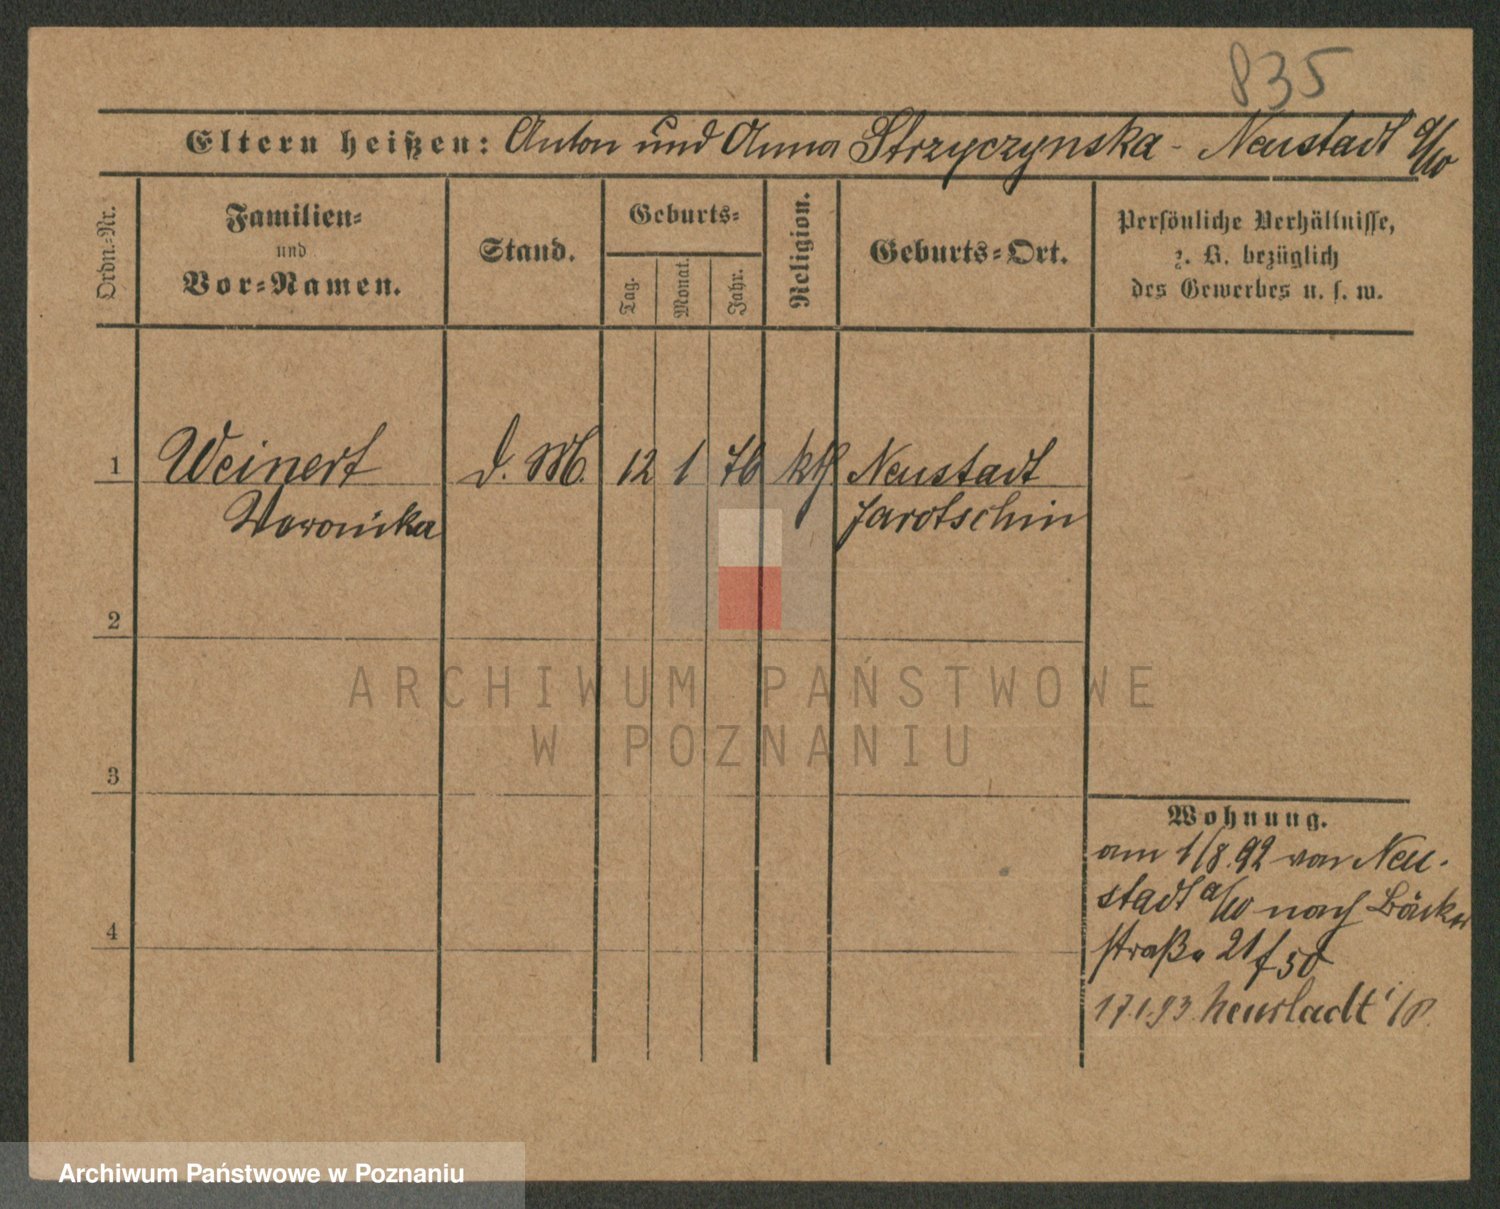 835
Eltern heißen: Anton und Anna Strzyczynska - Neustadt a/W
Ordn.=Nr.
Familien=
und
Vor=Namen.
Stand.
Geburts=
Tag.
Monat.
Jahr.
Religion.
Geburts=Ort.
Persönliche Verhältnisse,
z. B. bezüglich
des Gewerbes u. s. w.
1 Weinert d. M. 12 1 76 kth Neustadt
Veronika Jarotschin
2
3
4
Wohnung.
am 1/8.92 von Neu-
stadt a/W nach Bäcker
straße 21 f 50
17.1.93. Neustadt i/P.
ARCHIWUM PAŃSTWOWE
W POZNANIU
Archiwum Państwowe w Poznaniu